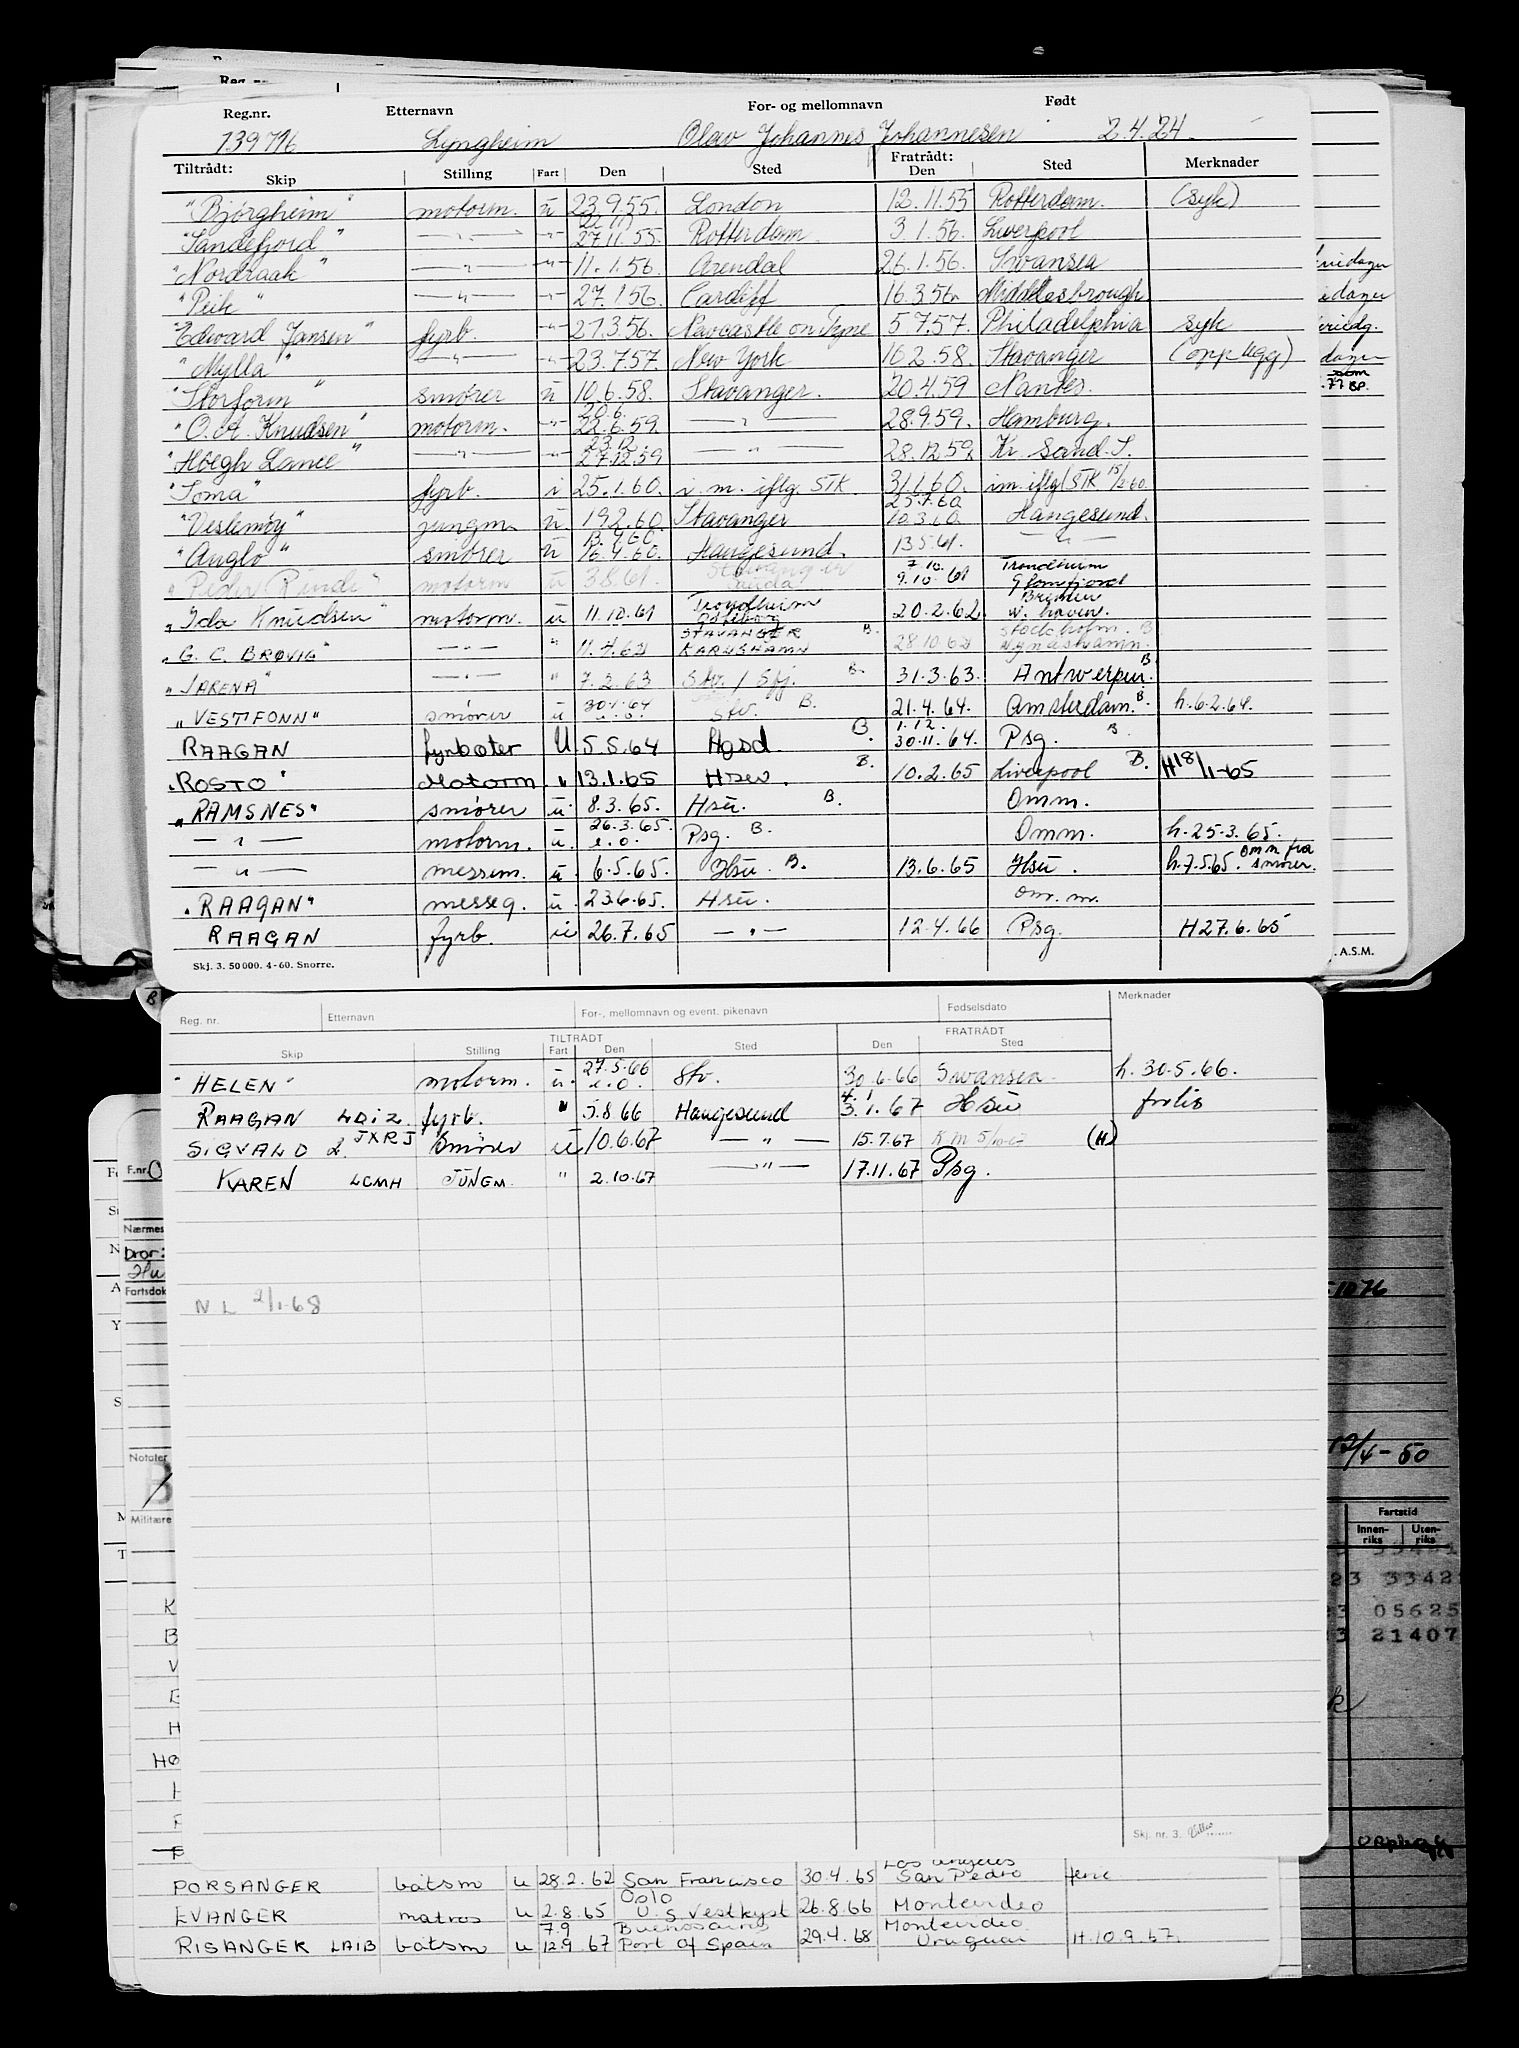 Reg.nr. Etternavn For- og mellomnavn Født
139796 Lyngheim Olav Johannes Johannesen 2.4.24
Tiltrådt: Skip Stilling Fart Den Sted Fratrådt: Den Sted Merknader
"Bjørgheim" motorm. u 23.9.55. London 12.11.55 Rotterdam. (syk)
"Sandefjord" —"— —"— 27.11.55. Rotterdam. 3.1.56. Liverpool
"Nordraak" —"— —"— 11.1.56. Arendal 26.1.56. Swansea
"Peik" —"— —"— 27.1.56. Cardiff 16.3.56 Middlesbrough
"Edward Jansen" fyrb. —"— 21.3.56. Newcastle on Tyne 5.7.57. Philadelphia syk
"Mylla" —"— —"— 23.7.57. New York 16.2.58. Stavanger (opplagg)
"Storfonn" smører u 10.6.58. Stavanger. 20.4.59 Nantes.
20.6.
"O. A. Knudsen" motorm. —"— 22.6.59. —"— 28.9.59. Hamburg.
23.12.
"Höegh Lance" —"— —"— 27.12.59 —"— 28.12.59 Kr. Sand. S.
"Toma" fyrb. i 25.1.60. i. m. iflg. STK. 31.1.60. im. iflg STK 15/2 60.
25.2.60
"Veslemøy" jungm. u 19.2.60. Stavanger 10.3.60. Haugesund.
13.4.60
"Anglo" smører u 16.4.60. Haugesund. 13.5.61. —"—
7.10. Trondheim
"Peder Rinde" motorm u 3.8.61. 9.10.61 Glomfjord
Trondheim Bremen
"Ida Knudsen" motorm. u 11.10.61 Göteborg 20.2.62 w. haven.
STAVANGER B. Stockholm. B
"G. C. BRØVIG" —"— " 11.4.62 KARLSHAMN 28.10.62 Nynäshamn.
"JARENA" —"— " 7.2.63 Stv. / Sfj. B. 31.3.63. Antwerpen. B
30.1.64
"VESTFONN" smører u e.o. Stv. B. 21.4.64. Amsterdam. B. h. 6.2.64.
1.12.
RAAGAN fyrbøter U 5.5.64 Hgsd. B. 30.11.64. Psg. B
"ROSTO" Motorm. " 13.1.65 Hsu. B. 10.2.65 Liverpool B. H18/1-65
"RAMSNES" smører u. 8.3.65. Hsu. B. Omm.
26.3.65.
—"— motorm. u. e.o. Psg. B. Omm. h. 25.3.65.
—"— messem. u. 6.5.65. Hsu. B. 13.6.65 Hsu. h. 7.5.65. Omm fra smører.
"RAAGAN" messeg. u. 23.6.65. Hsu. om. m.
RAAGAN fyrb. u 26.7.65 —"— 12.4.66 Psg. H27.6.65
Skj. 3. 50 000. 4-60. Snorre.
. A.S.M.
Reg. nr. Etternavn For-, mellomnavn og event. pikenavn Fødselsdato Merknader
TILTRÅDT FRATRÅDT
Skip Stilling Fart Den Sted Den Sted
27.5.66
"HELEN" motorm. u. e.o. Stv. 30.6.66 Swansea h. 30.5.66.
4.1
RAAGAN LDIZ fyrb. " 5.8.66 Haugesund 3.1.67 Hsu forlis
SIGVALD 2. JXRJ Smører u 10.6.67 —"— 15.7.67 KM 5/10-67 (H)
KAREN LCMH JUNGM. " 2.10.67 —"— 17.11.67 Psg.
N L 2/1-68
Skj. nr. 3.
F.nr.
Nærmes
bror:
Hu
Fartsdok
Notater
Militære
1076
12/4-50
Fartstid
Innenriks Utenriks
23 3342
3 05625
3 21407
Los Angeles
PORSANGER båtsm u 28.2.62 San Francisco 30.4.65 San Pedro ferie
Oslo
EVANGER matros u 2.8.65 U.S Vestkyst 26.8.66 Montevideo
7.9 Buenos aires Montevideo.
RISANGER LAIB båtsm u 12.9.67 Port of Spain 29.4.68 Uruguai H.10.9.67.